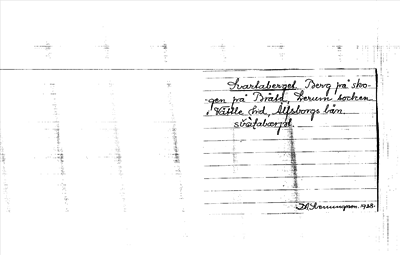 Svartaberget. Berg på sko-
gen på Bråta, Lerum socken
i Vättle hrd, Älfsborgs län.
svátabærjət.
Henningson. 1928.